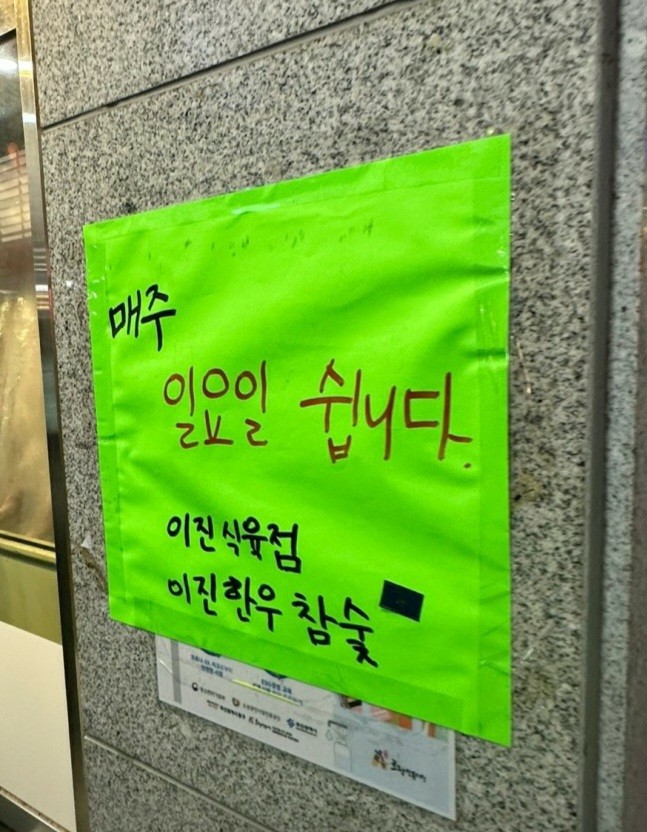 매주
일요일 쉽니다.
이진식육점
이진한우 참숯